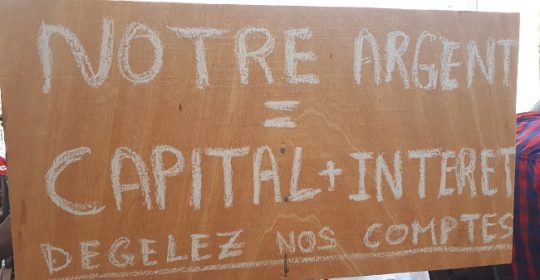 NOTRE ARGENT
=
CAPITAL+INTERET
DEGELEZ NOS COMPTES